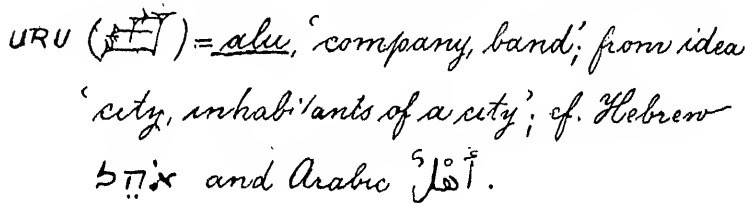 URU (𒌷) = alu, 'company, band'; from idea
'city, inhabitants of a city'; cf. Hebrew
אֹהֵל and Arabic أَهْلٌ.